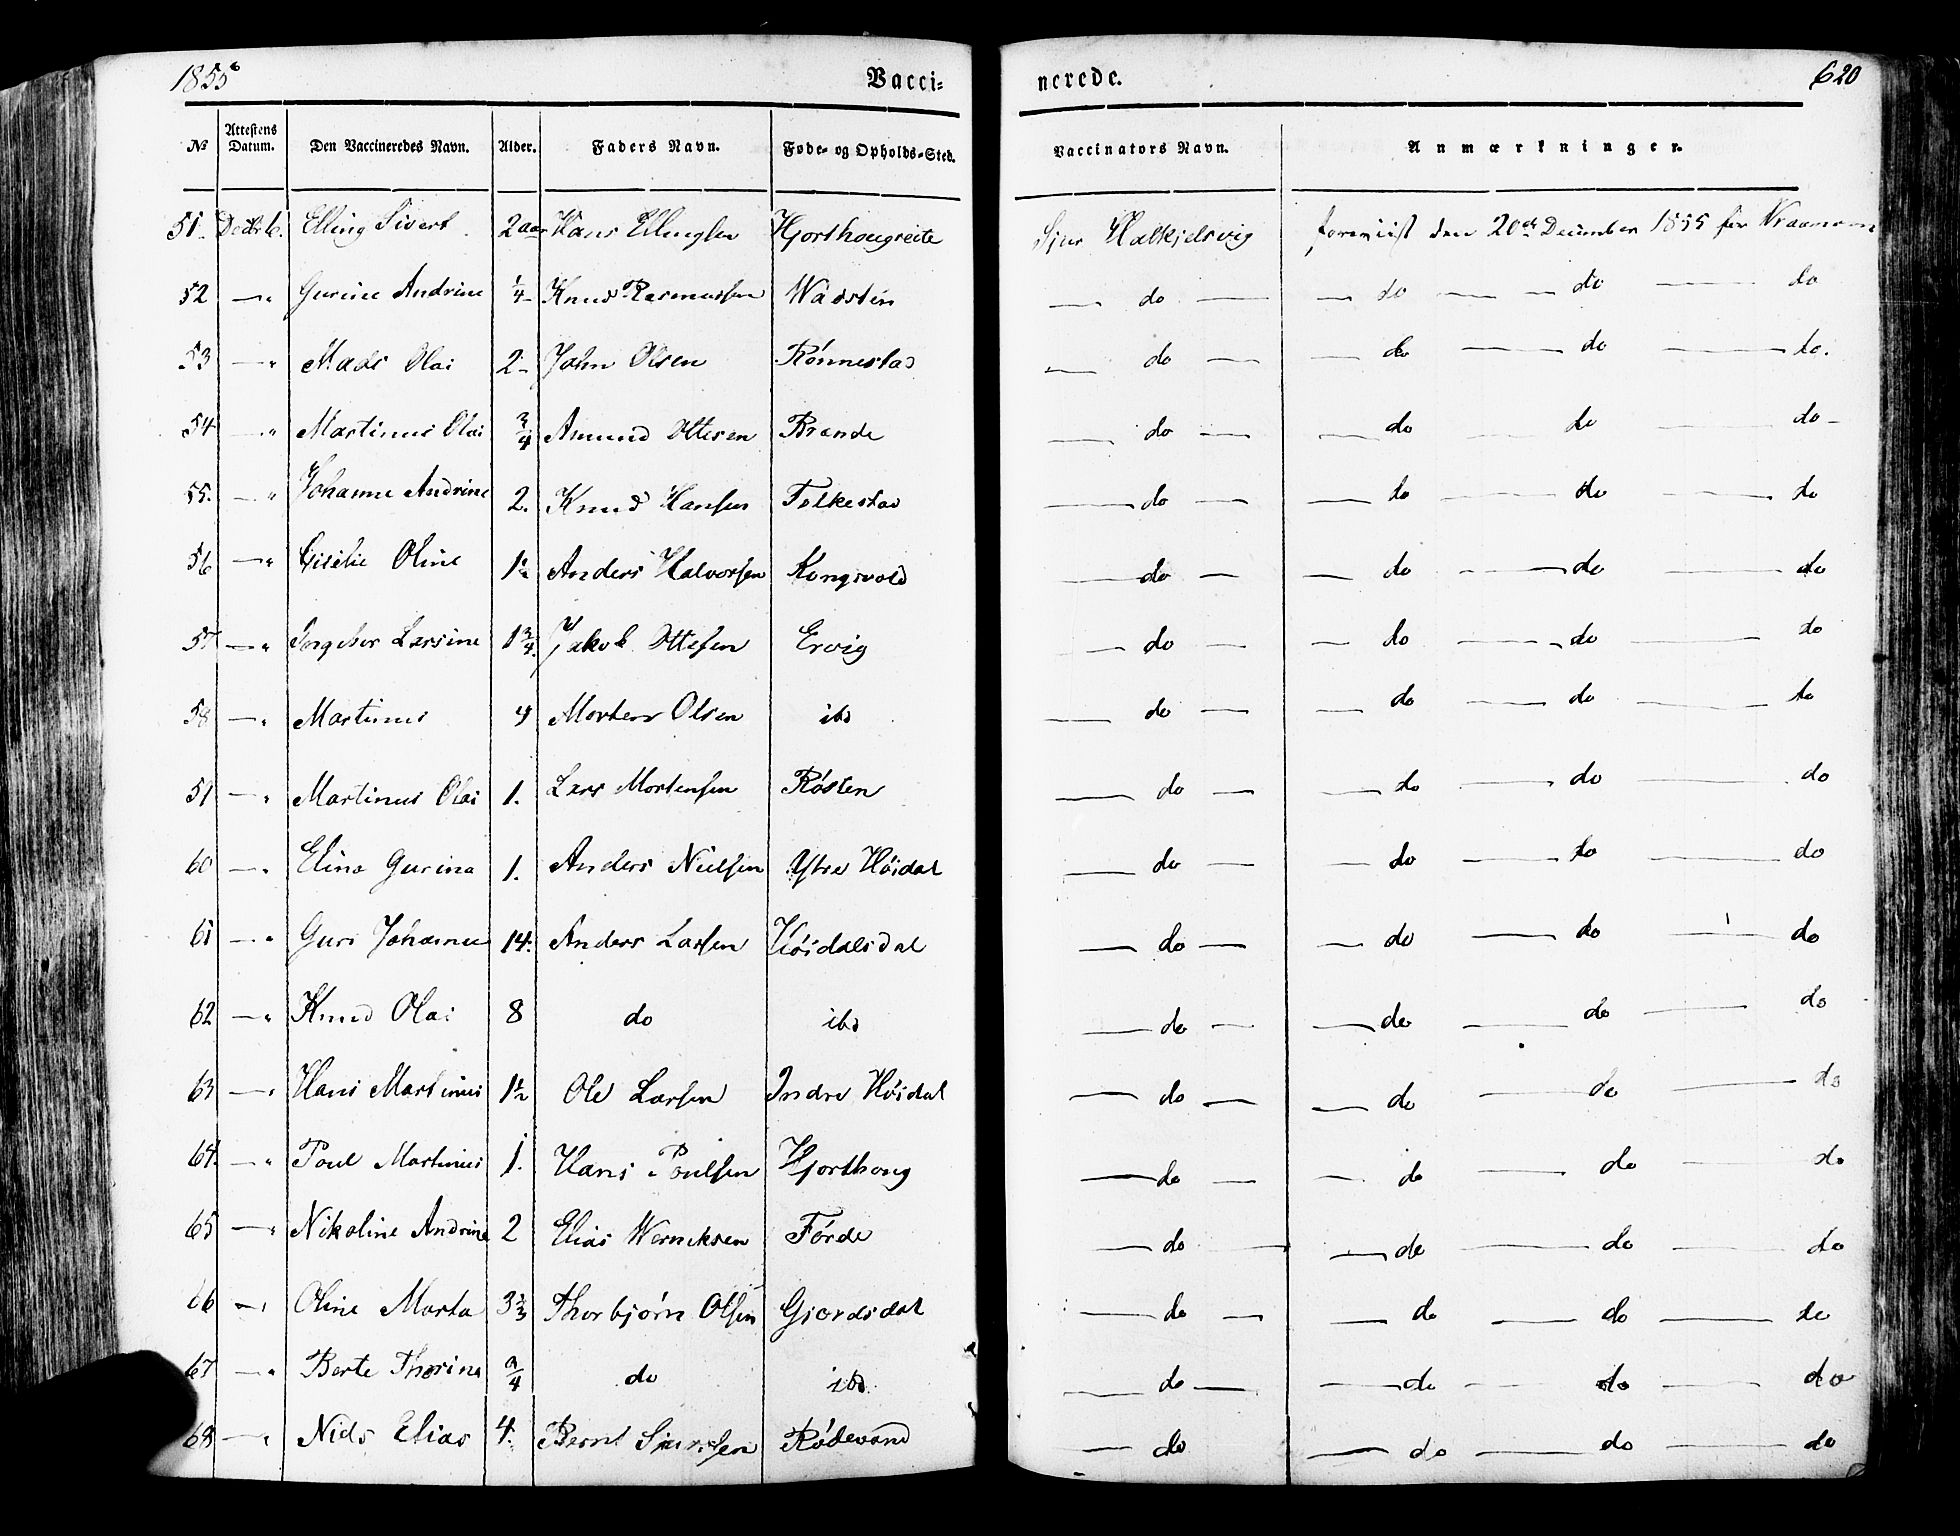 1855 Vacci- nerede. 620
No Attestens Datum. Den Vaccineredes Navn. Alder. Faders Navn. Føde- og Opholds-Sted. Vaccinators Navn. Anmærkninger.
51. Decbr 6. Elling Sivert 2 aar Hans Ellingsen Hjorthougreite Sjur Halkjelsvig foreviist den 20de December 1855 for
52 — " Gurine Andrine 1/4 - Knud Rasmussen Wadsten — do — — do — — do — do
53 — " Mads Olai 2 - John Olsen Rønnestad — do — — do — do — do.
54 — " Martinus Olai 3/4 Amund Ottesen Brande — do — — do — do — do -
55. — " Johanne Andrine 2. Knud Hansen Folkestad — do — — do — do — do
56 — " Oline 1 1/2 Anders Halvorsen Kongsvold — do — — do — do — do
57 — " Ingebor Larsine 1 3/4. Jakob Ottesen Ervig — do — — do — do — do
58 — " Martinus 4 Morten Olsen ibd — do — — do — do — do
59 — " Martinus Olai 1. Lars Mortensen Røsten — do — — do — do — do
60 — " Elina Gurina 1. Anders Nielsen Ytre Høidal — do — — do — do — do
61 — " Guri Johanne 14. Anders Larsen Høidalsdal — do — — do — do — do
62 — " Knud Olai 8 do ibd — do — — do — do — do
63 — " Hans Martinus 1 1/2 Ole Larsen Indre Høidal — do — — do — do — do
64. — " Poul Martinus 1. Hans Poulsen Hjorthoug — do — — do — do — do
65 — " Nikoline Andrine 2 Elias Werniksen Førde — do — — do — do — do
66 — " Oline Marta 3 2/3 Thorbjørn Olsen Gjerdsdal — do — — do — do — do
67 — " Berte Thorina /4 do ibd — do — — do — do — do
68 — " Niels Elias 4. Bernt Sjursen Rødevand — do — do — do — do